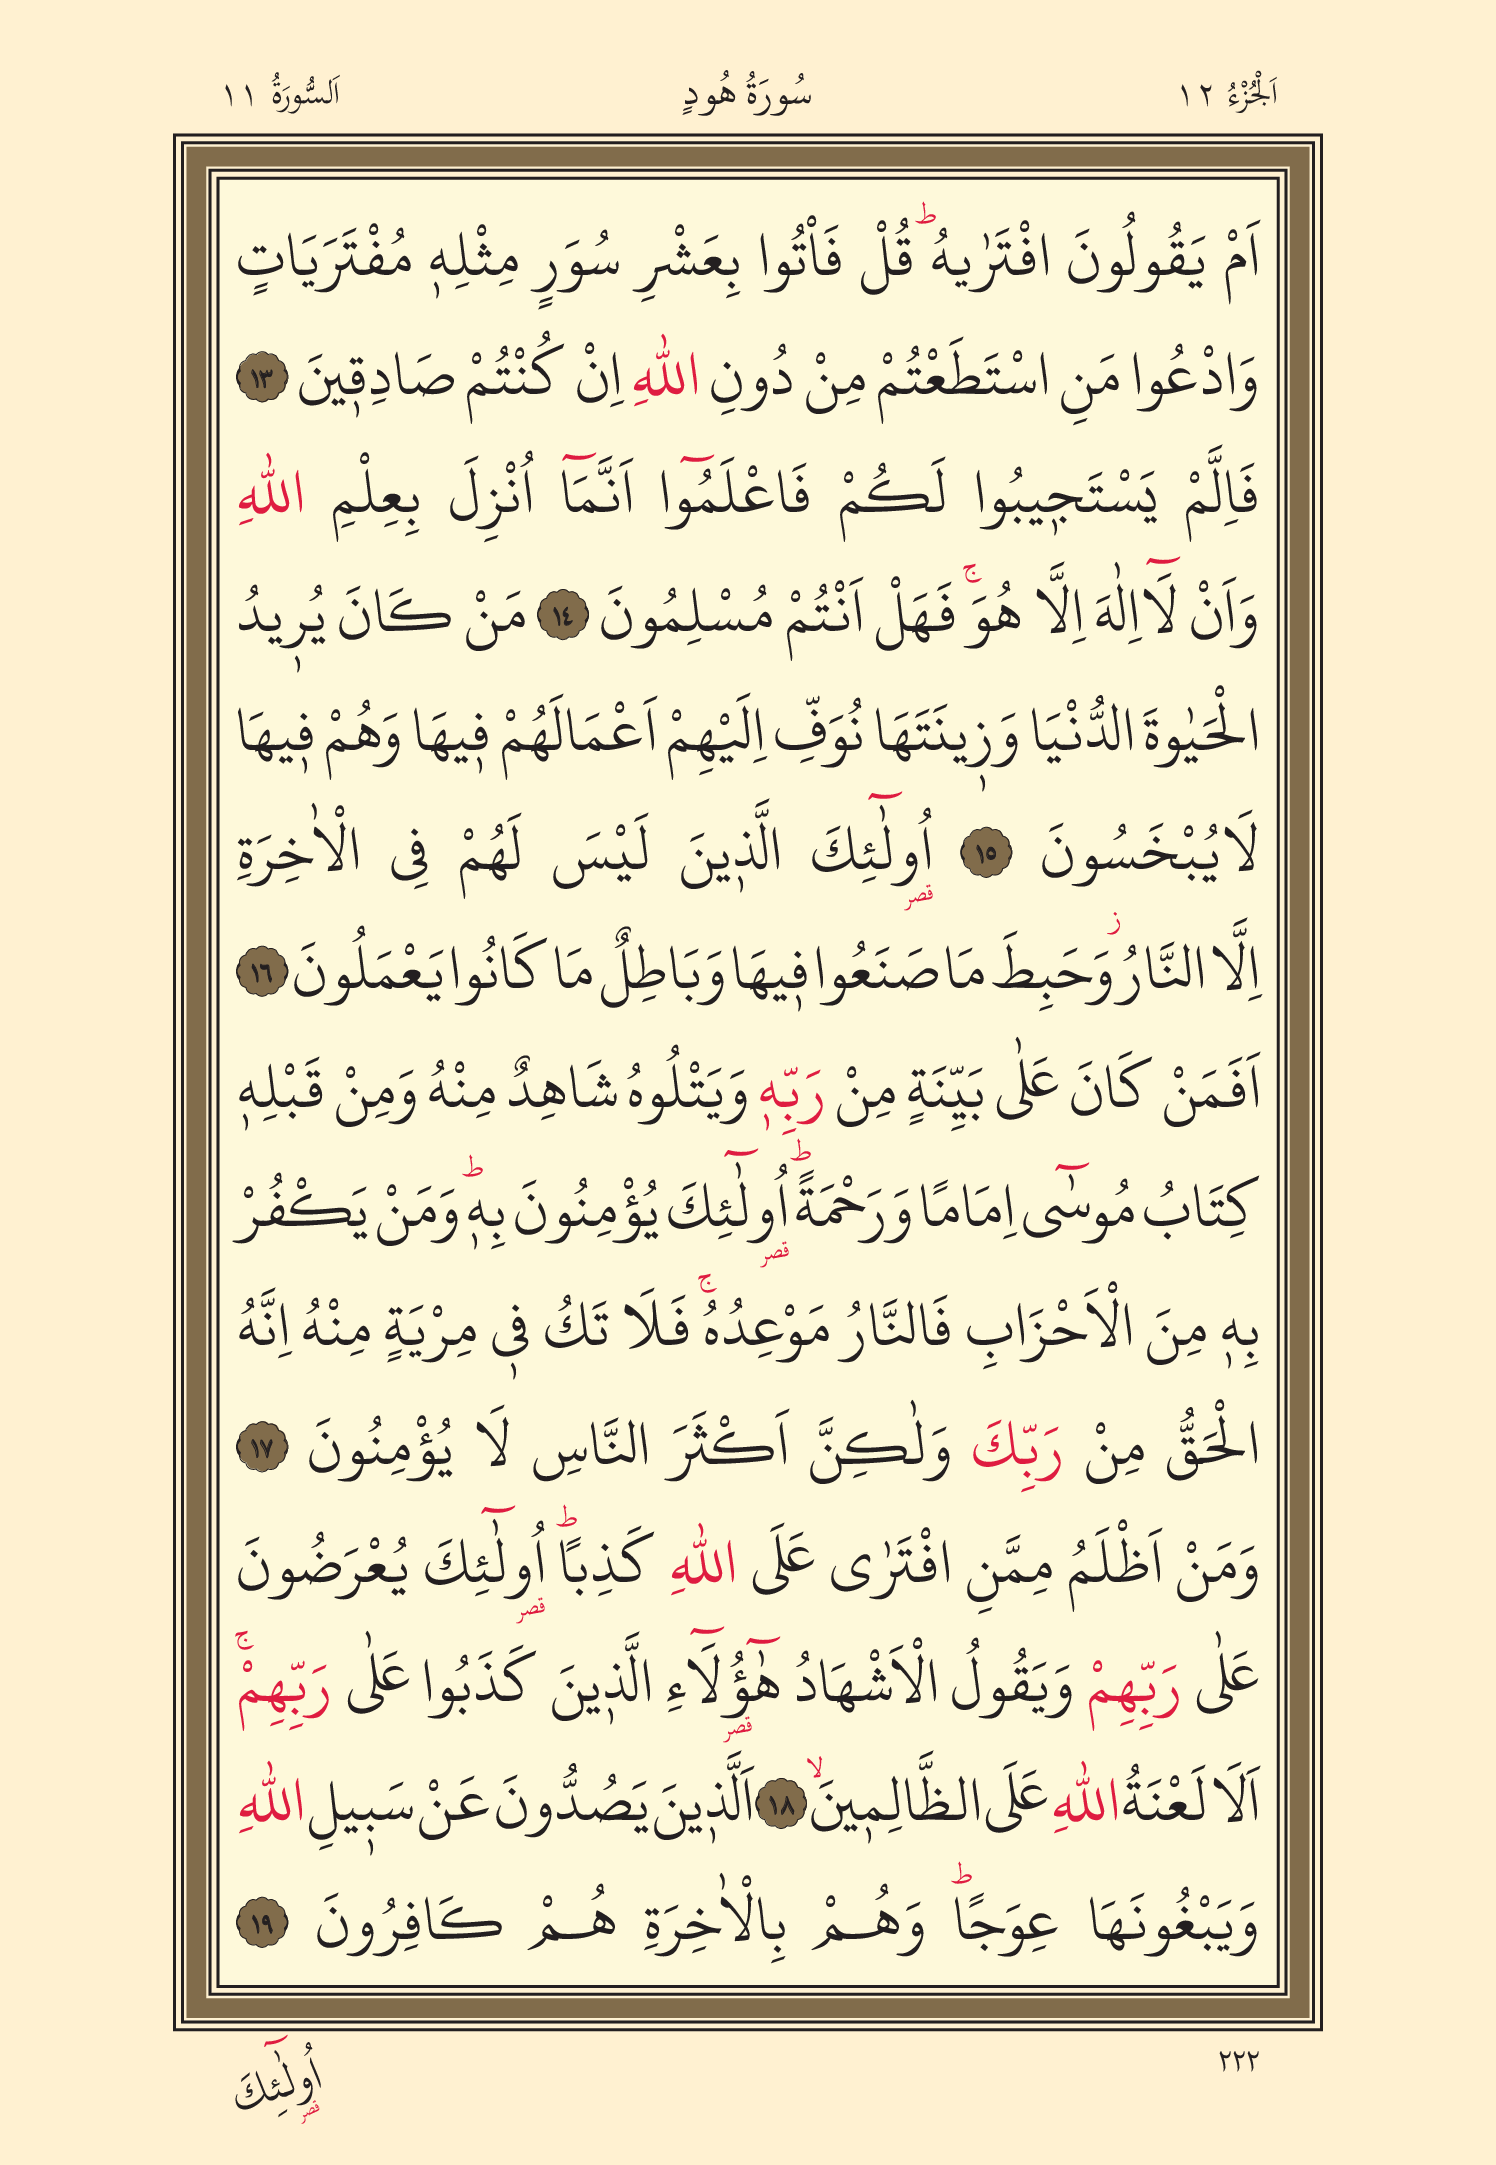 اَلْجُزْءُ ١٢ سُورَةُ هُودٍ اَلسُّورَةُ ١١
اَمْ يَقُولُونَ افْتَرٰيهُ ط قُلْ فَاْتُوا بِعَشْرِ سُوَرٍ مِثْلِهٖ مُفْتَرَيَاتٍ
وَادْعُوا مَنِ اسْتَطَعْتُمْ مِنْ دُونِ اللّٰهِ اِنْ كُنْتُمْ صَادِقٖينَ ١٣
فَاِلَّمْ يَسْتَجٖيبُوا لَكُمْ فَاعْلَمُٓوا اَنَّمَٓا اُنْزِلَ بِعِلْمِ اللّٰهِ
وَاَنْ لَٓا اِلٰهَ اِلَّا هُوَ ج فَهَلْ اَنْتُمْ مُسْلِمُونَ ١٤ مَنْ كَانَ يُرٖيدُ
الْحَيٰوةَ الدُّنْيَا وَزٖينَتَهَا نُوَفِّ اِلَيْهِمْ اَعْمَالَهُمْ فٖيهَا وَهُمْ فٖيهَا
لَا يُبْخَسُونَ ١٥ اُولٰٓئِكَ قصر الَّذٖينَ لَيْسَ لَهُمْ فِى الْاٰخِرَةِ
اِلَّا النَّارُ ز وَحَبِطَ مَا صَنَعُوا فٖيهَا وَبَاطِلٌ مَا كَانُوا يَعْمَلُونَ ١٦
اَفَمَنْ كَانَ عَلٰى بَيِّنَةٍ مِنْ رَبِّهٖ وَيَتْلُوهُ شَاهِدٌ مِنْهُ وَمِنْ قَبْلِهٖ
كِتَابُ مُوسٰٓى اِمَامًا وَرَحْمَةً ط اُولٰٓئِكَ قصر يُؤْمِنُونَ بِهٖ ط وَمَنْ يَكْفُرْ
بِهٖ مِنَ الْاَحْزَابِ فَالنَّارُ مَوْعِدُهُ ج فَلَا تَكُ فٖى مِرْيَةٍ مِنْهُ اِنَّهُ
الْحَقُّ مِنْ رَبِّكَ وَلٰكِنَّ اَكْثَرَ النَّاسِ لَا يُؤْمِنُونَ ١٧
وَمَنْ اَظْلَمُ مِمَّنِ افْتَرٰى عَلَى اللّٰهِ كَذِبًا ط اُولٰٓئِكَ قصر يُعْرَضُونَ
عَلٰى رَبِّهِمْ وَيَقُولُ الْاَشْهَادُ هٰٓؤُلَٓاءِ قصر الَّذٖينَ كَذَبُوا عَلٰى رَبِّهِمْ ج
اَلَا لَعْنَةُ اللّٰهِ عَلَى الظَّالِمٖينَ لا ١٨ اَلَّذٖينَ يَصُدُّونَ عَنْ سَبٖيلِ اللّٰهِ
وَيَبْغُونَهَا عِوَجًا ط وَهُمْ بِالْاٰخِرَةِ هُمْ كَافِرُونَ ١٩
٢٢٢ اُولٰٓئِكَ قصر